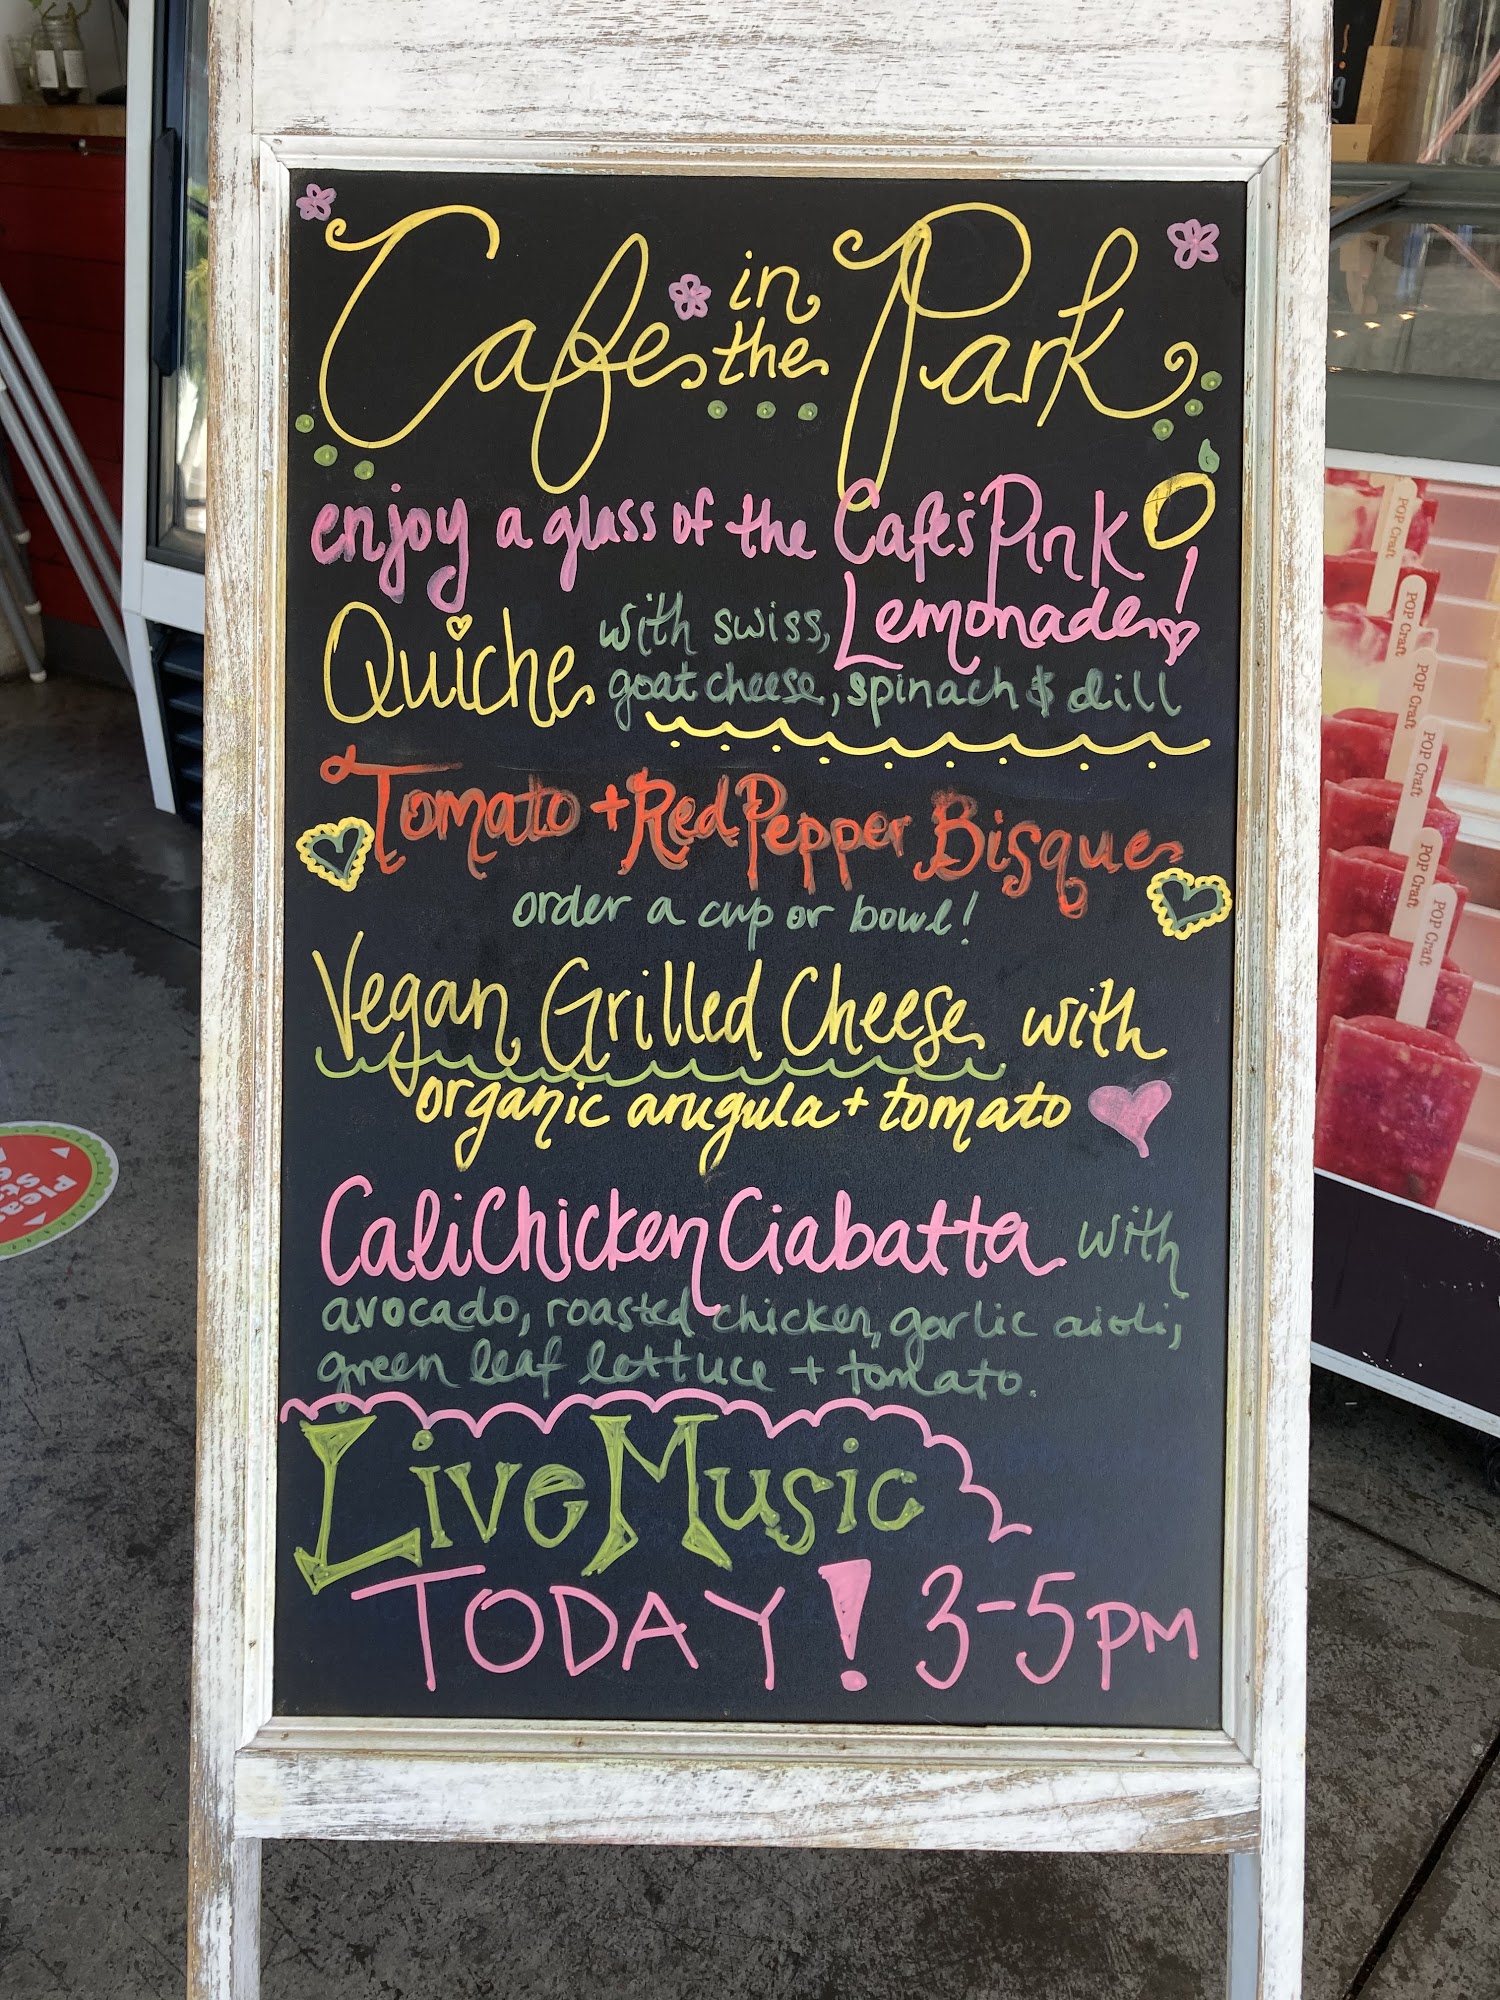 Cafe in the Park
enjoy a glass of the Cafe's Pink
Lemonade!
Quiche with swiss,
goat cheese, spinach & dill
Tomato + Red Pepper Bisque
order a cup or bowl!
Vegan Grilled Cheese with
organic arugula + tomato
Cali Chicken Ciabatta with
avocado, roasted chicken, garlic aioli,
green leaf lettuce + tomato.
Live Music
TODAY! 3-5PM
POP Craft
POP Craft
POP Craft
POP Craft
POP Craft
POP Craft